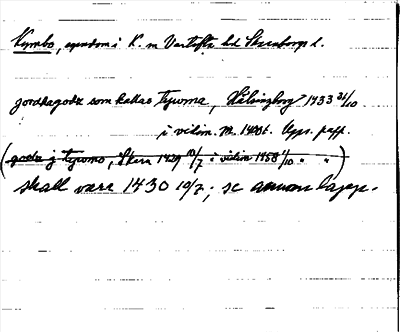 Kymbo, egendom i K. m Vartofta hd Skaraborgs l.
jordhagodz som kallas Tywma, Hälsingborg 1433 31/10
i vidim. 1400t. Upps. papp.
(godz j Tywmo, Skara 1429 10/7 i vidim 1458 1/10 " ")
skall vara 1430 10/7; se annan lapp.